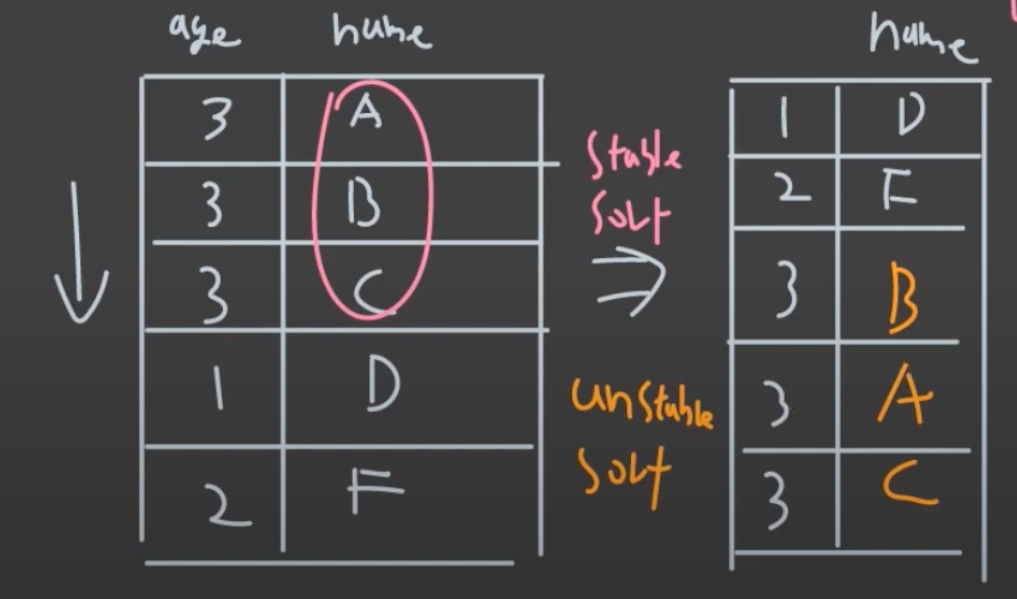 age name
3 A
3 B
3 C
1 D
2 F
Stable
Sort
unstable
Sort
name
1 D
2 F
3 B
3 A
3 C